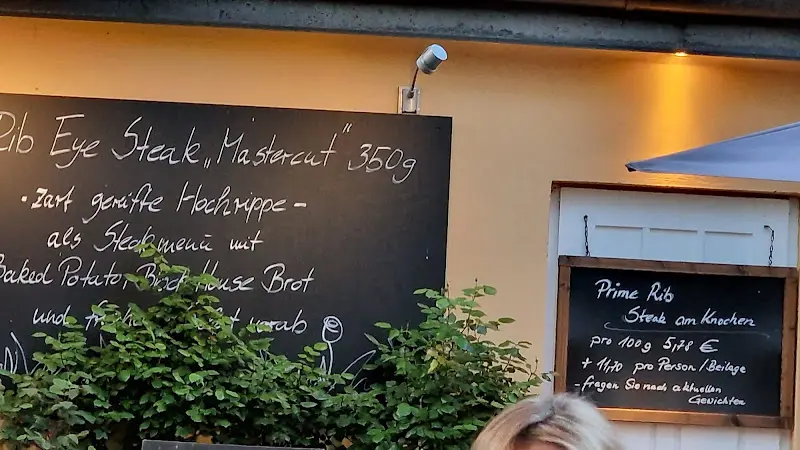 Rib Eye Steak „Mastercut" 350g
· Zart gereifte Hochrippe -
als Steakmenü mit
Baked Potato Block House Brot
und vorab
Prime Rib
Steak am Knochen
pro 100g 5,78 €
+ 11,70 pro Person / Beilage
- fragen Sie nach aktuellen
Gewichten